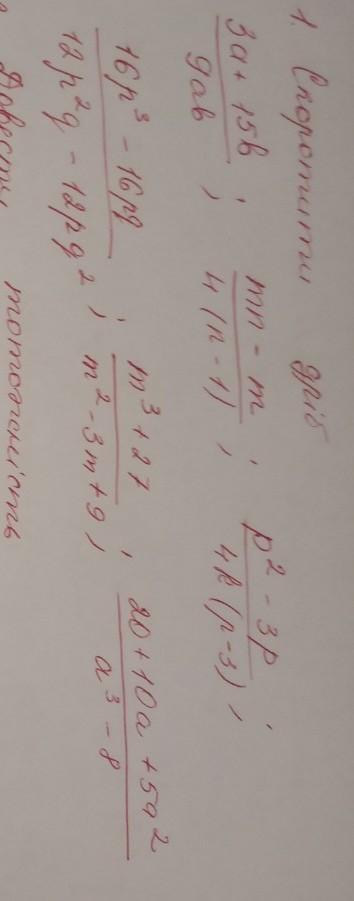 1. Скоротити дріб
(3a + 15b)/(9ab) ; (mn - m)/(4(n - 1)) ; (p² - 3p)/(4k(p - 3)) ;
(16p³ - 16pq)/(12p²q - 12pq²) ; (m³ + 27)/(m² - 3m + 9) ; (20 + 10a + 5a²)/(a³ - 8)
Довести тотожність